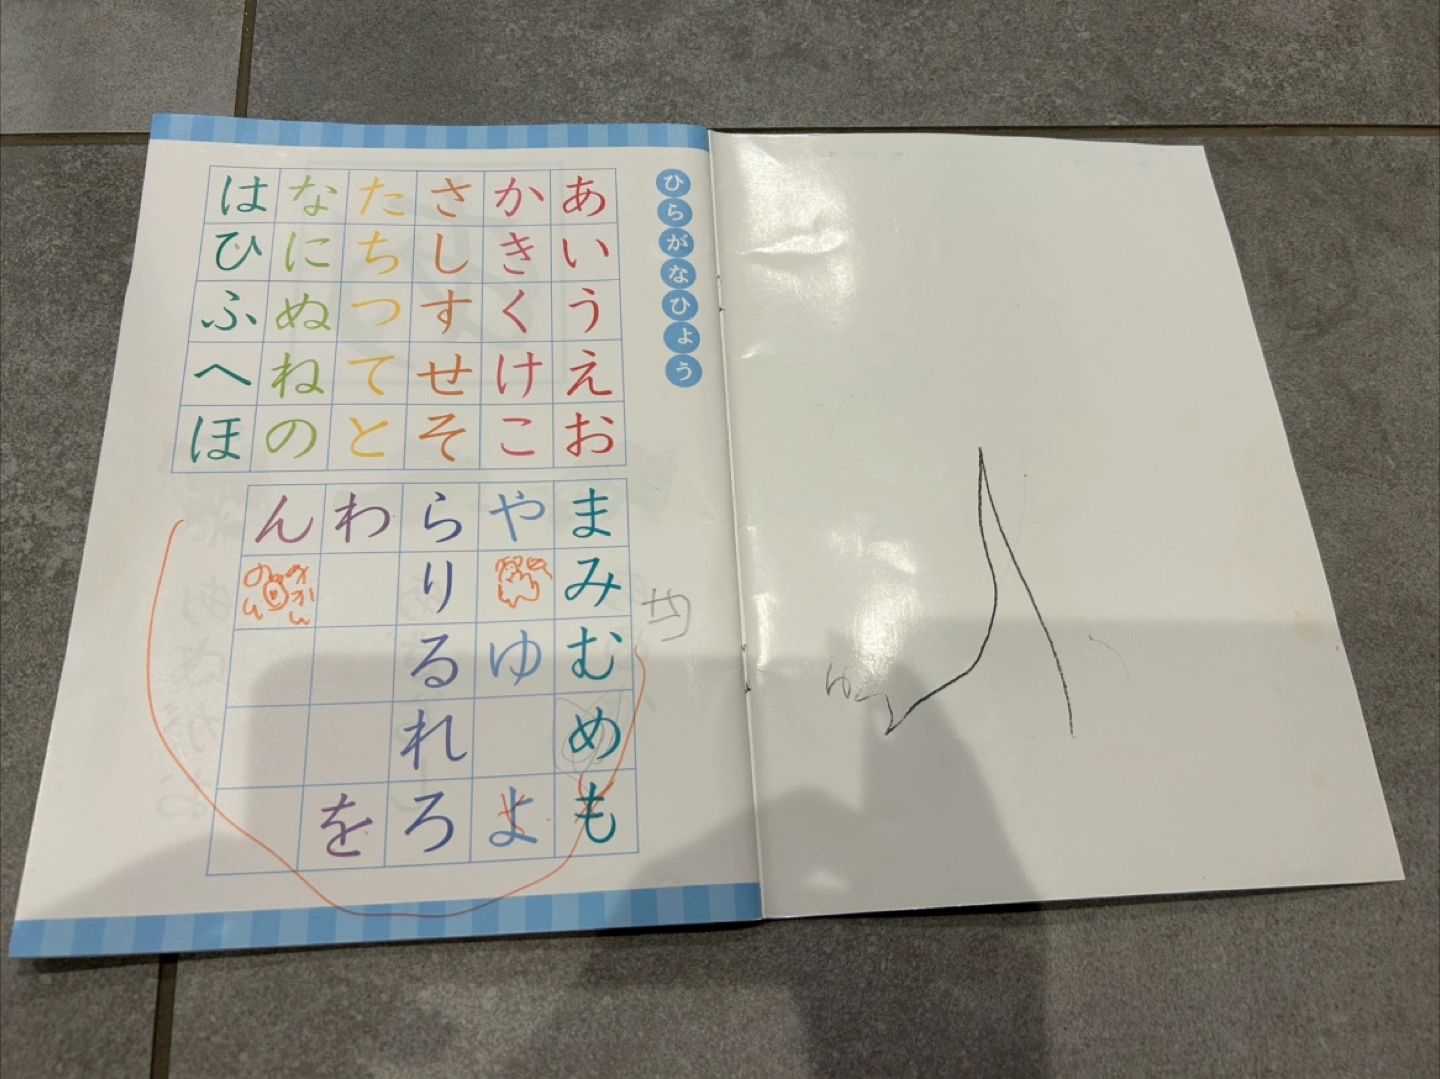 ひらがなひょう
あかさたなは
いきしちにひ
うくすつぬふ
えけせてねへ
おこそとのほ
まやらわん
みり
むゆる
めれ
もよろを